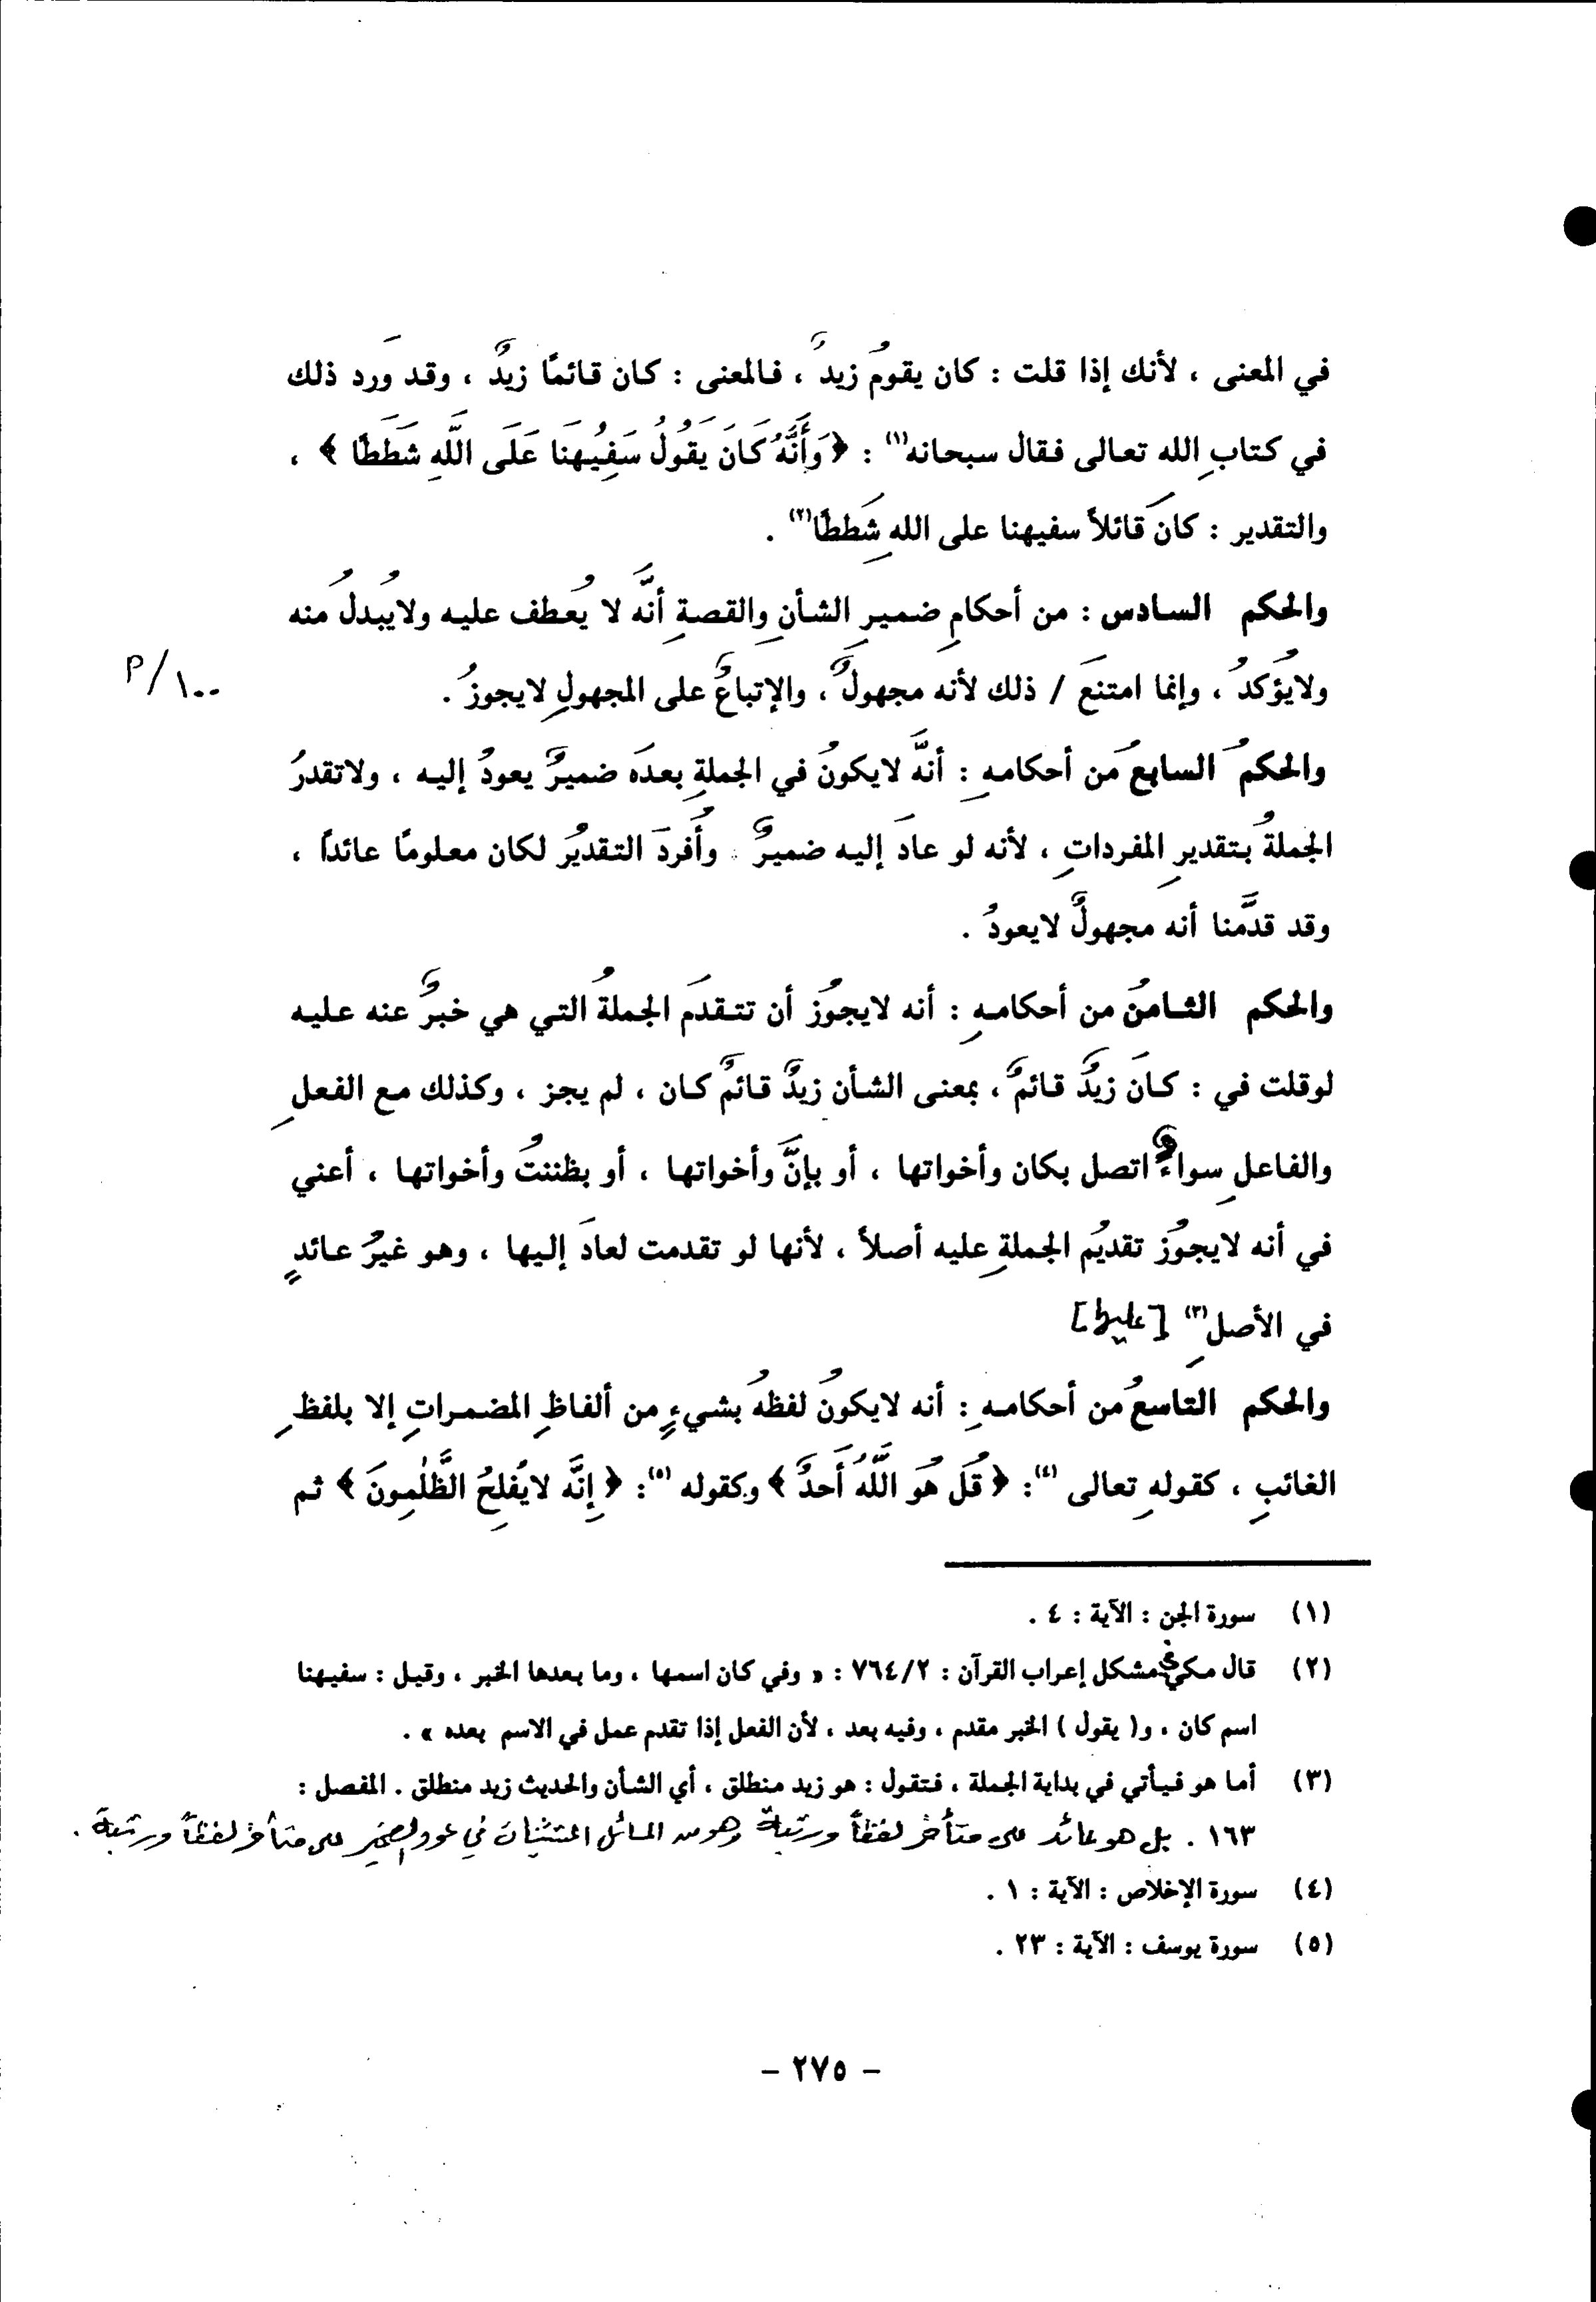 في المعنى ، لأنك إذا قلت : كان يقومُ زيدٌ ، فالمعنى : كان قائمًا زيدٌ ، وقد وَرد ذلك
في كتابِ الله تعالى فقال سبحانه(١) : ﴿ وَأَنَّهُ كَانَ يَقُولُ سَفِيهُنَا عَلَى اللَّهِ شَطَطًا ﴾ ،
والتقدير : كانَ قائلاً سفيهنا على اللهِ شَططًا(٢) .
والحكم السادس : من أحكامِ ضميرِ الشأنِ والقصةِ أنَّه لا يُعطف عليه ولايُبدلُ منه
ولايُؤكدُ ، وإنما امتنعَ / ذلك لأنه مجهولٌ ، والإتباعُ على المجهولِ لايجوزُ .
١٠٠/م
والحكمُ السابعُ من أحكامهِ : أنَّه لايكونُ في الجملةِ بعدَه ضميرٌ يعودُ إليه ، ولاتقدرُ
الجملةُ بتقديرِ المفرداتِ ، لأنه لو عادَ إليه ضميرٌ وأُفردَ التقديرُ لكان معلومًا عائداً ،
وقد قدَّمنا أنه مجهولٌ لايعودُ .
والحكم الثامنُ من أحكامهِ : أنه لايجوُز أن تتقدَم الجملةُ التي هي خبرٌ عنه عليه
لوقلت في : كانَ زيدٌ قائمٌ ، بمعنى الشأن زيدٌ قائمٌ كان ، لم يجز ، وكذلك مع الفعلِ
والفاعلِ سواءٌ اتصل بكان وأخواتها ، أو بإنَّ وأخواتها ، أو بظننتُ وأخواتها ، أعني
في أنه لايجوُز تقديُم الجملةِ عليه أصلاً ، لأنها لو تقدمت لعادَ إليها ، وهو غيرُ عائدٍ
في الأصلِ(٣) [عليها]
والحكم التاسعُ من أحكامهِ : أنه لايكونُ لفظهُ بشيءٍ من ألفاظِ المضمراتِ إلا بلفظِ
الغائبِ ، كقولهِ تعالى (٤): ﴿ قُلْ هُوَ اللَّهُ أَحَدٌ ﴾ وكقوله (٥): ﴿ إِنَّه لايُفلِحُ الظَّلٰمِونَ ﴾ ثم
(١) سورة الجن : الآية : ٤ .
(٢) قال مكي في مشكل إعراب القرآن : ٧٦٤/٢ : « وفي كان اسمها ، وما بعدها الخبر ، وقيل : سفيهنا
اسم كان ، و( يقول ) الخبر مقدم ، وفيه بعد ، لأن الفعل إذا تقدم عمل في الاسم بعده » .
(٣) أما هو فيأتي في بداية الجملة ، فتقول : هو زيد منطلق ، أي الشأن والحديث زيد منطلق . المفصل :
١٦٣ . بل هو عائد على متأخرٍ لفظاً ورتبةً وهو من المسائل المستثنيات في عود الضمير على متأخر لفظاً ورتبةً .
(٤) سورة الإخلاص : الآية : ١ .
(٥) سورة يوسف : الآية : ٢٣ .
- ٢٧٥ -